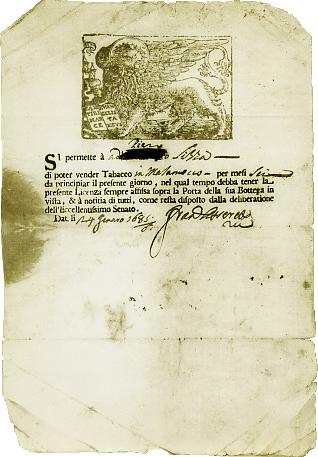 Piero
SI permette à Sozza
di poter vender Tabacco in Malamocco per mesi Sei
da principiar il presente giorno, nel qual tempo debba tener la
presente Licenza sempre affissa sopra la Porta della sua Bottega in
vista, & à notitia di tutti, come resta disposto dalla deliberatione
dell'Eccellentissimo Senato.
Dat. li 24 Genaro 1685